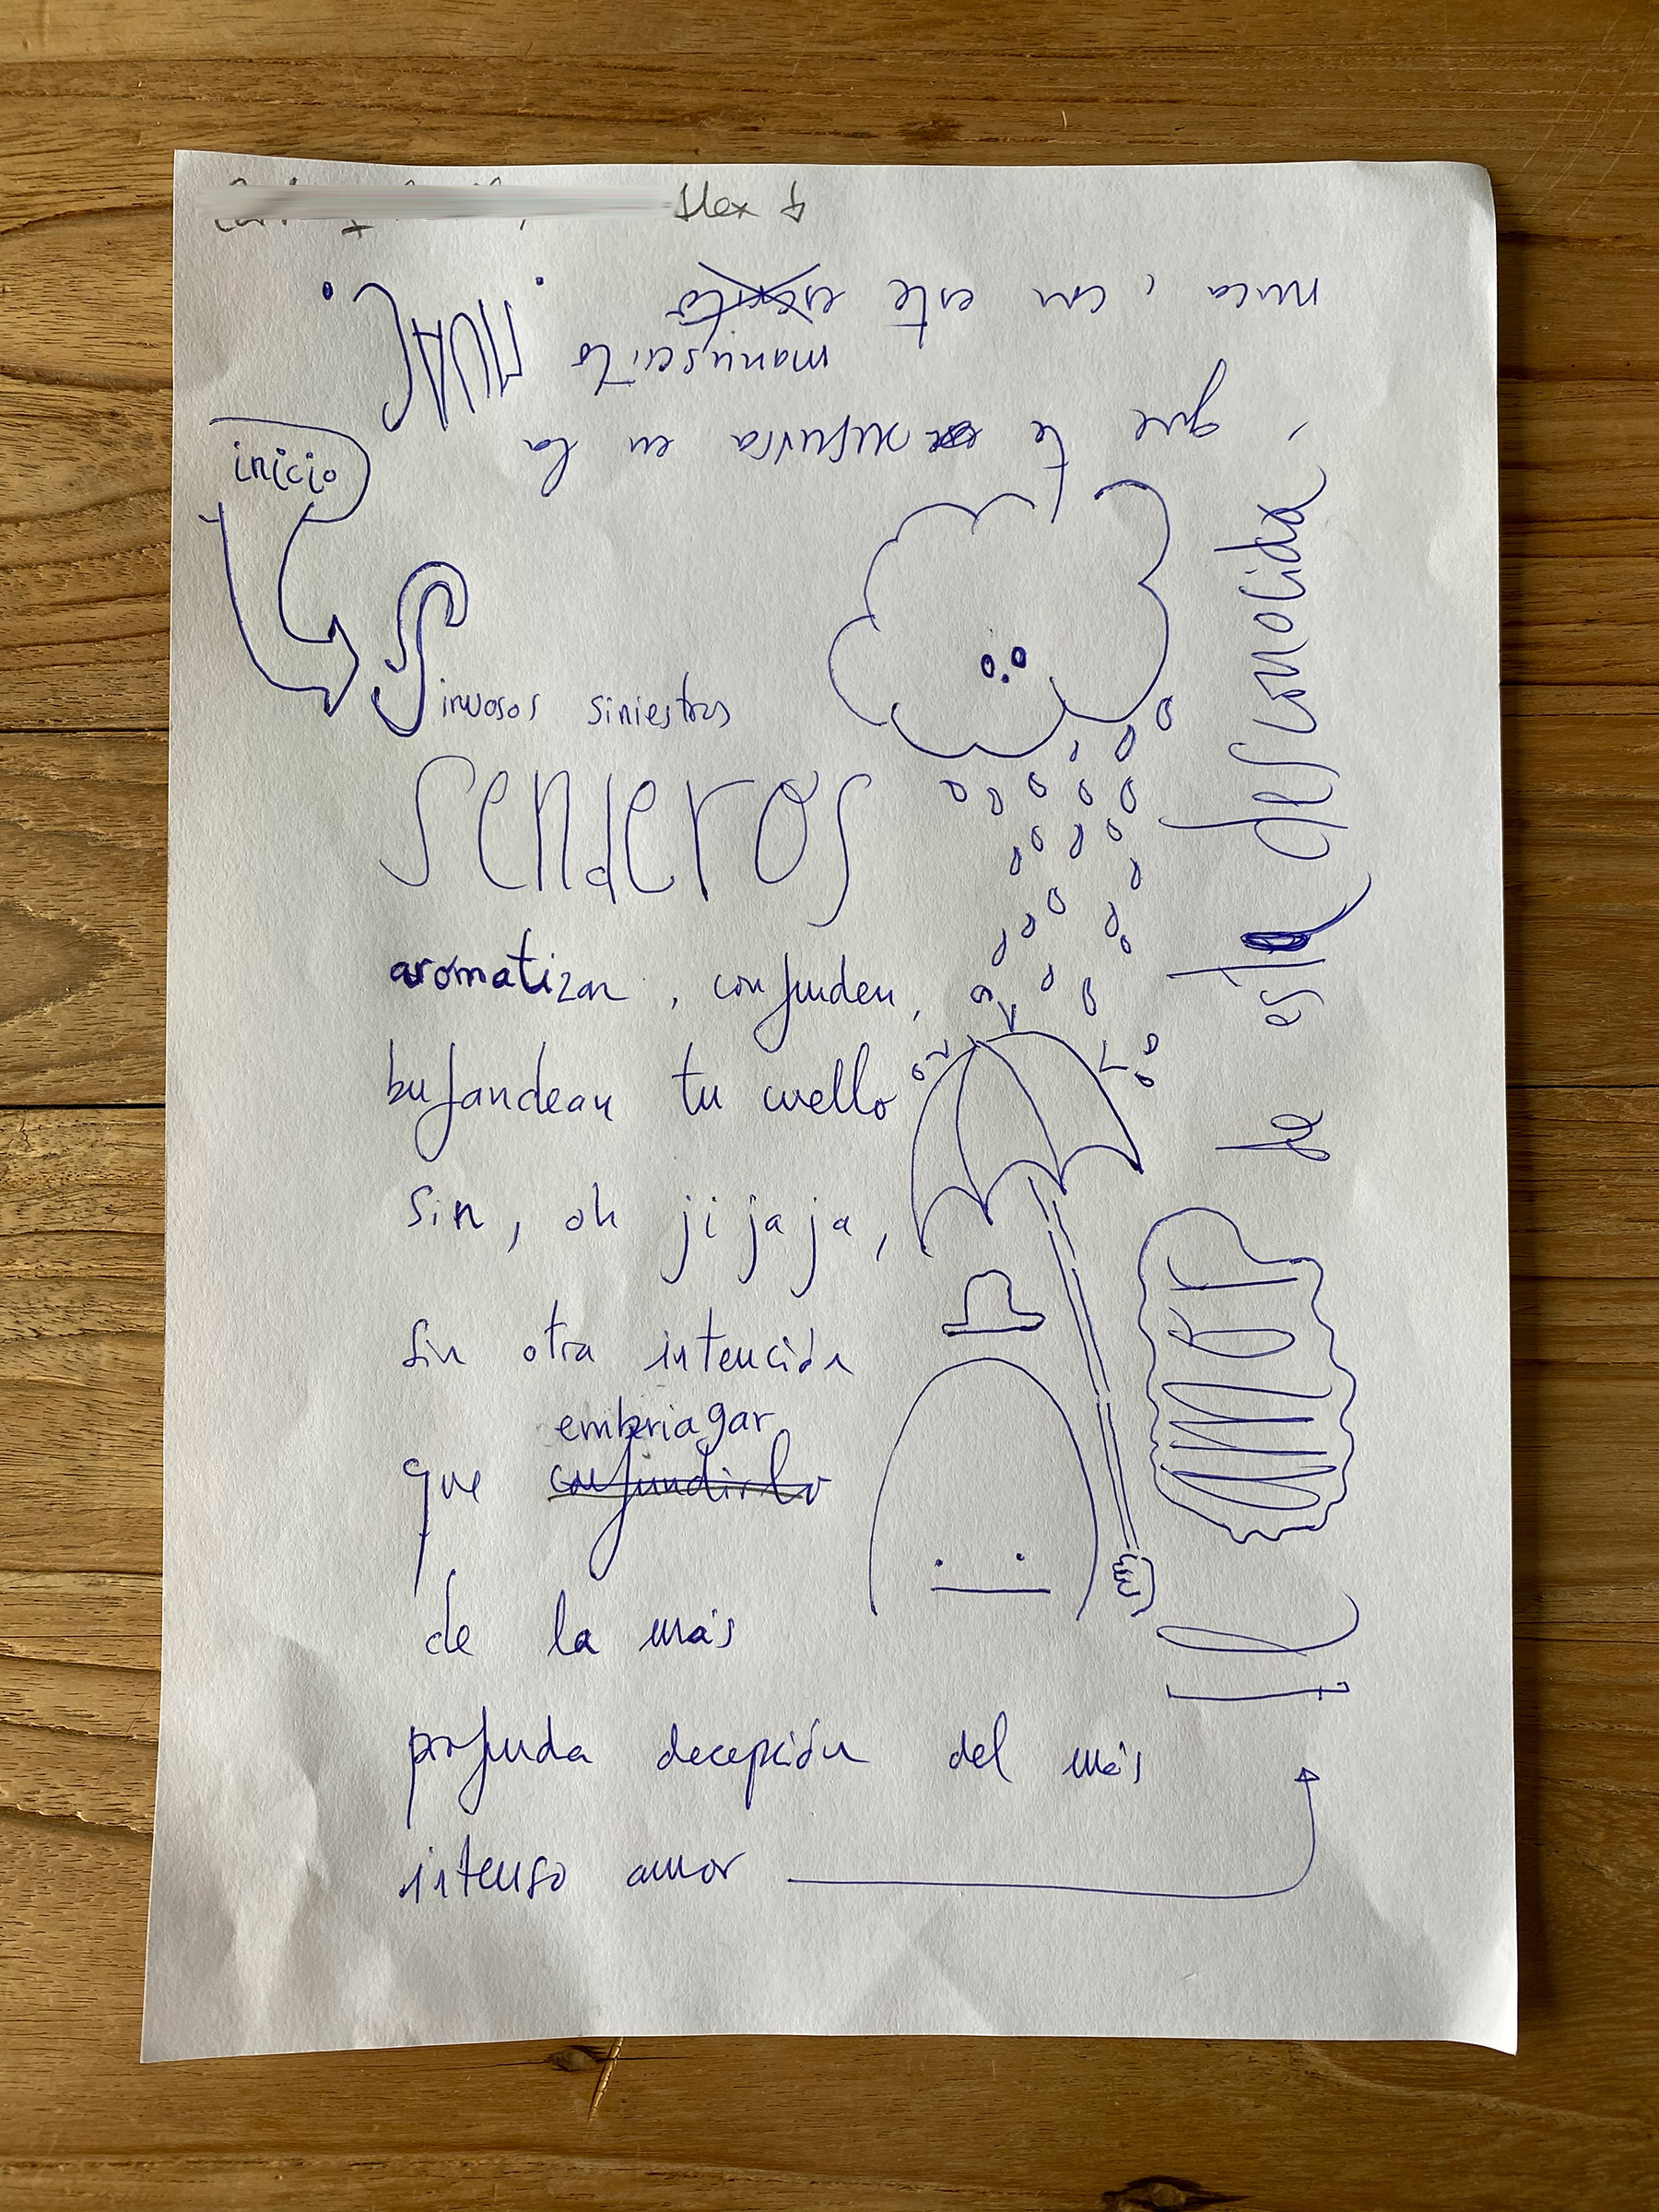 Alex
inicio
Sinuosos siniestros
senderos
aromatizan, confunden,
bufandean tu cuello
sin, oh jijaja,
sin otra intención
embriagar
que confundirlo
de la más
profunda decepción del más
intenso amor
AMOR de esta desconocida,
que te susurra en la
nuca, con este escrito
manuscrito ¡MUAC!